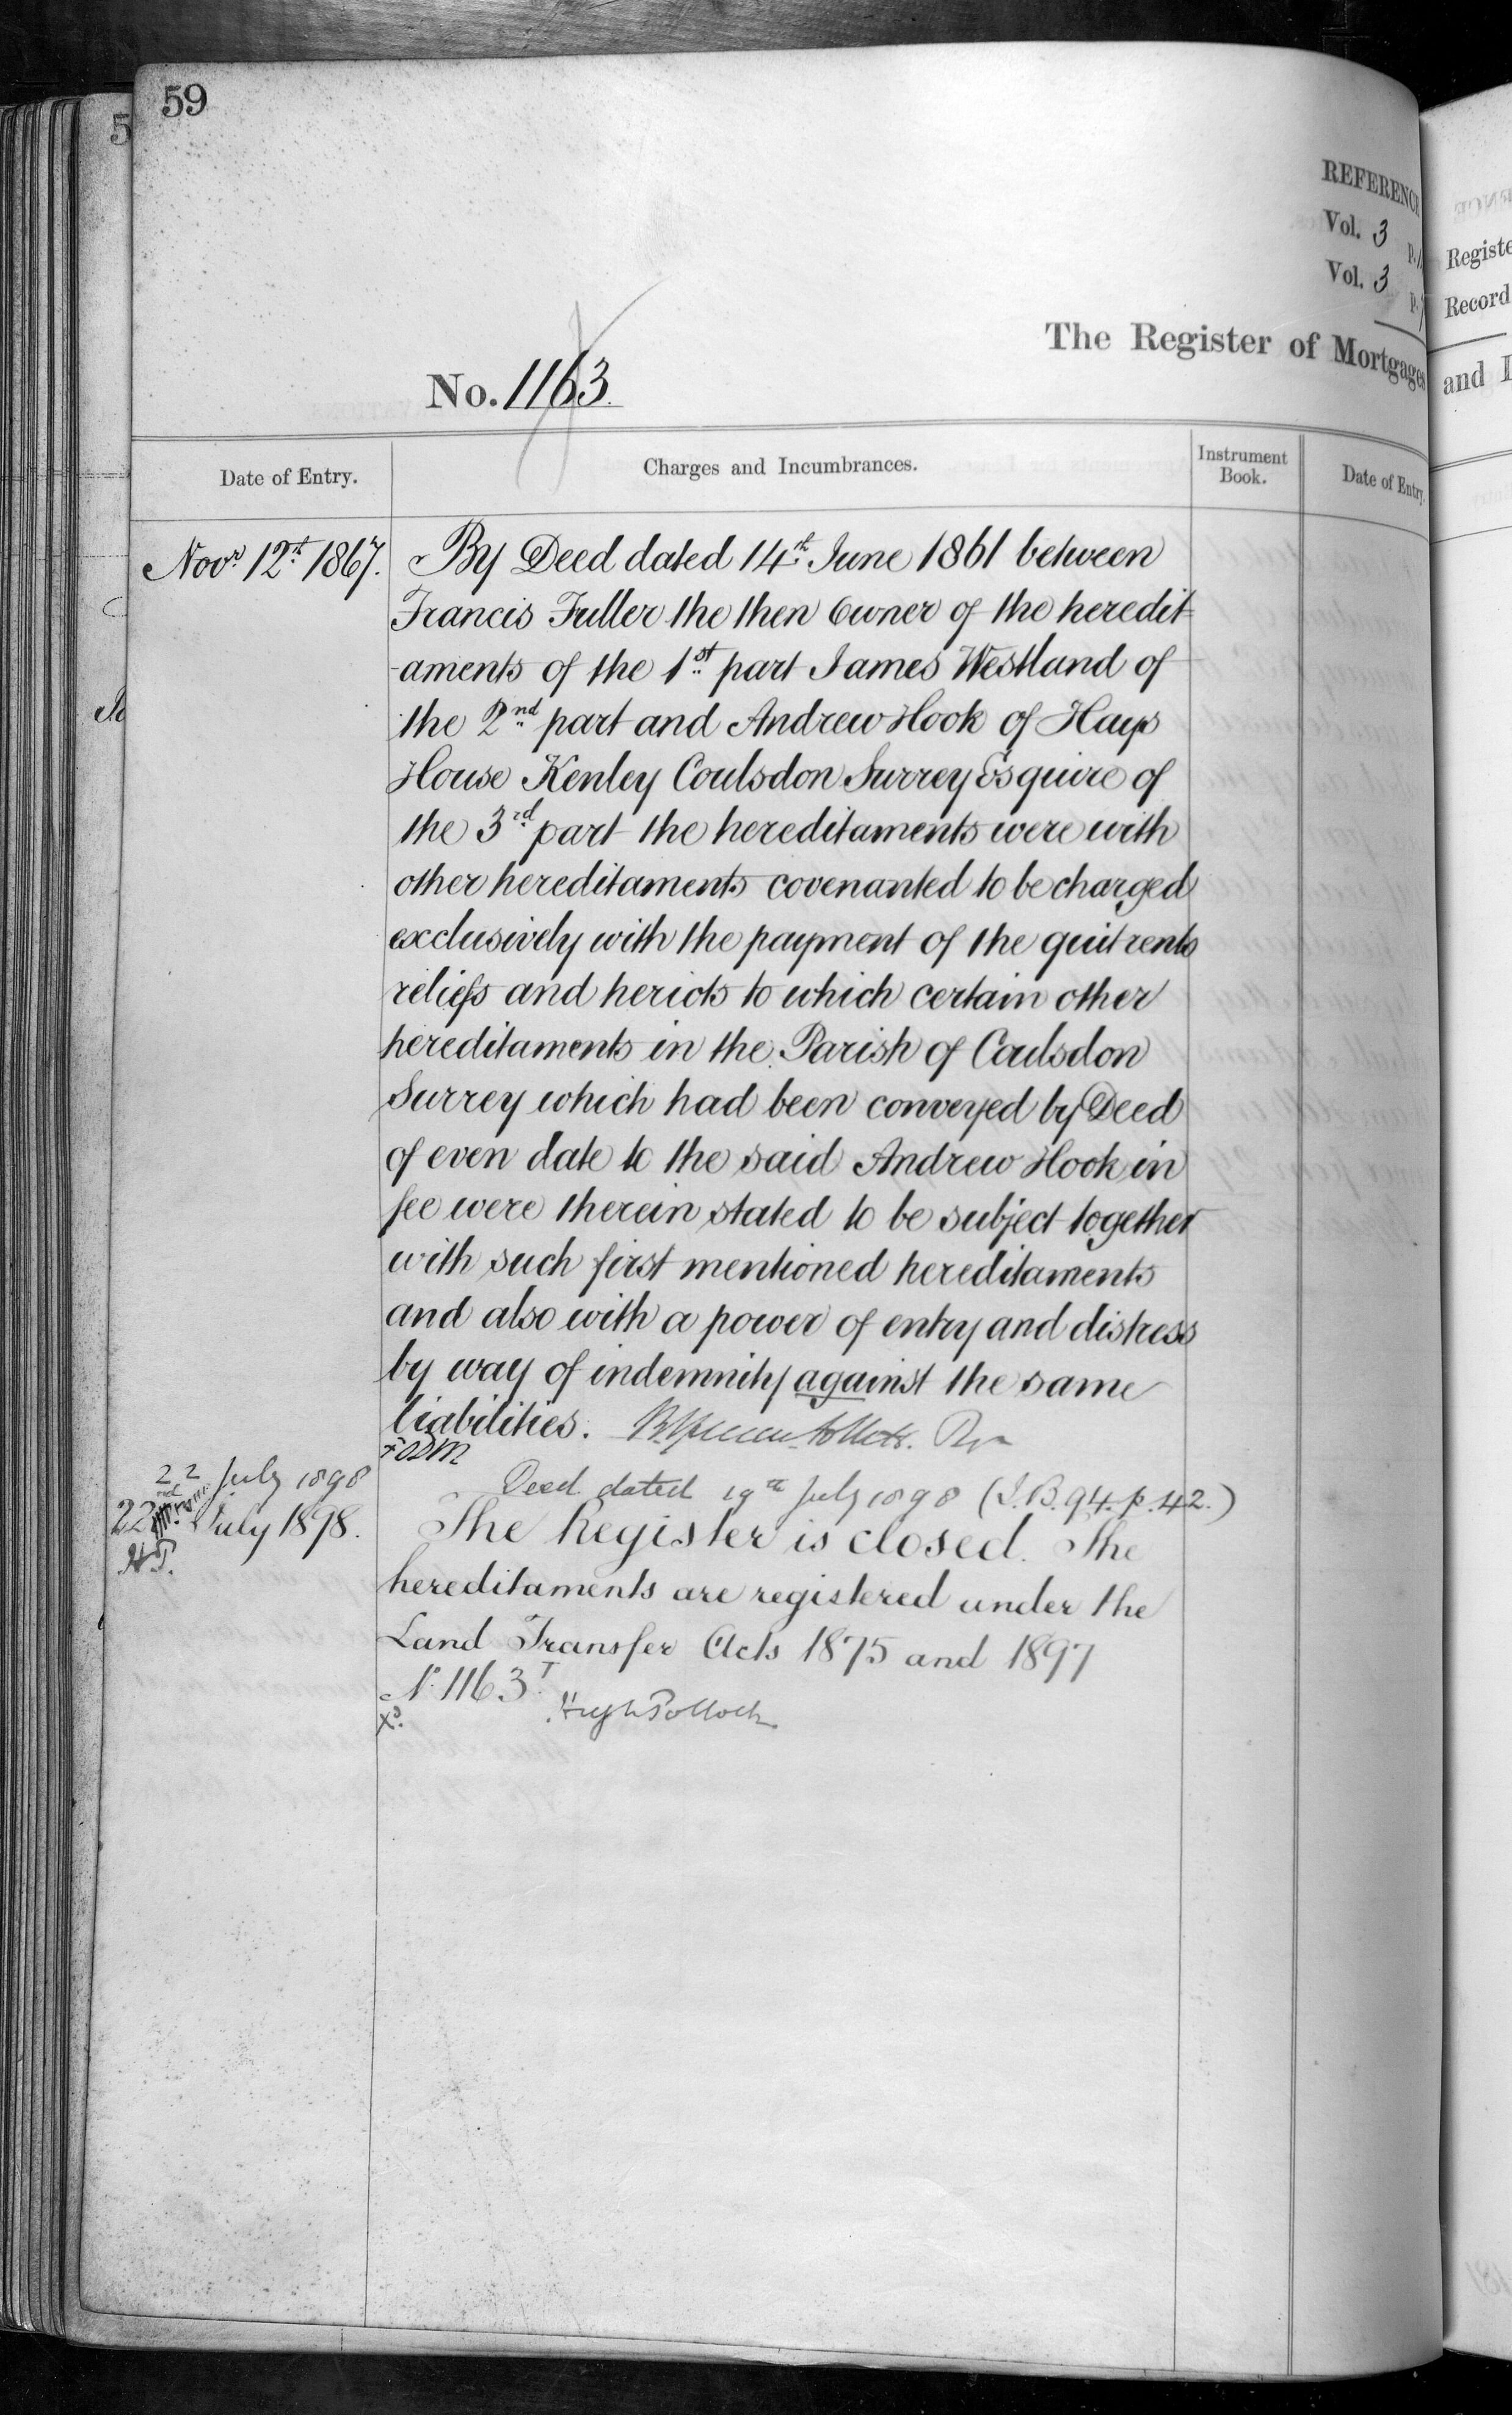 59
REFERENC
Vol. 3 p.
Vol. 3 p.
Registe
Record
The Register of Mortgages
and I
No. 1163
Date of Entry.
Charges and Incumbrances.
Instrument Book.
Date of Entry.
Novr 12th 1867. By Deed dated 14th June 1861 between
Francis Fuller the then Owner of the heredit-
-aments of the 1st part James Westland of
the 2nd part and Andrew Hook of Hays
House Kenley Coulsdon Surrey Esquire of
the 3rd part the hereditaments were with
other hereditaments covenanted to be charged
exclusively with the payment of the quit rents
reliefs and heriots to which certain other
hereditaments in the Parish of Coulsdon
Surrey which had been conveyed by Deed
of even date to the said Andrew Hook in
fee were therein stated to be subject together
with such first mentioned hereditaments
and also with a power of entry and distress
by way of indemnity against the same
liabilities.
22 July 1898 Deed dated 19th July 1898 (I.B. 94. p. 42.)
22nd July 1898. The Register is closed. The
H.P.
hereditaments are registered under the
Land Transfer Acts 1875 and 1897
No. 1163T.
Xd. Hugh Pollock